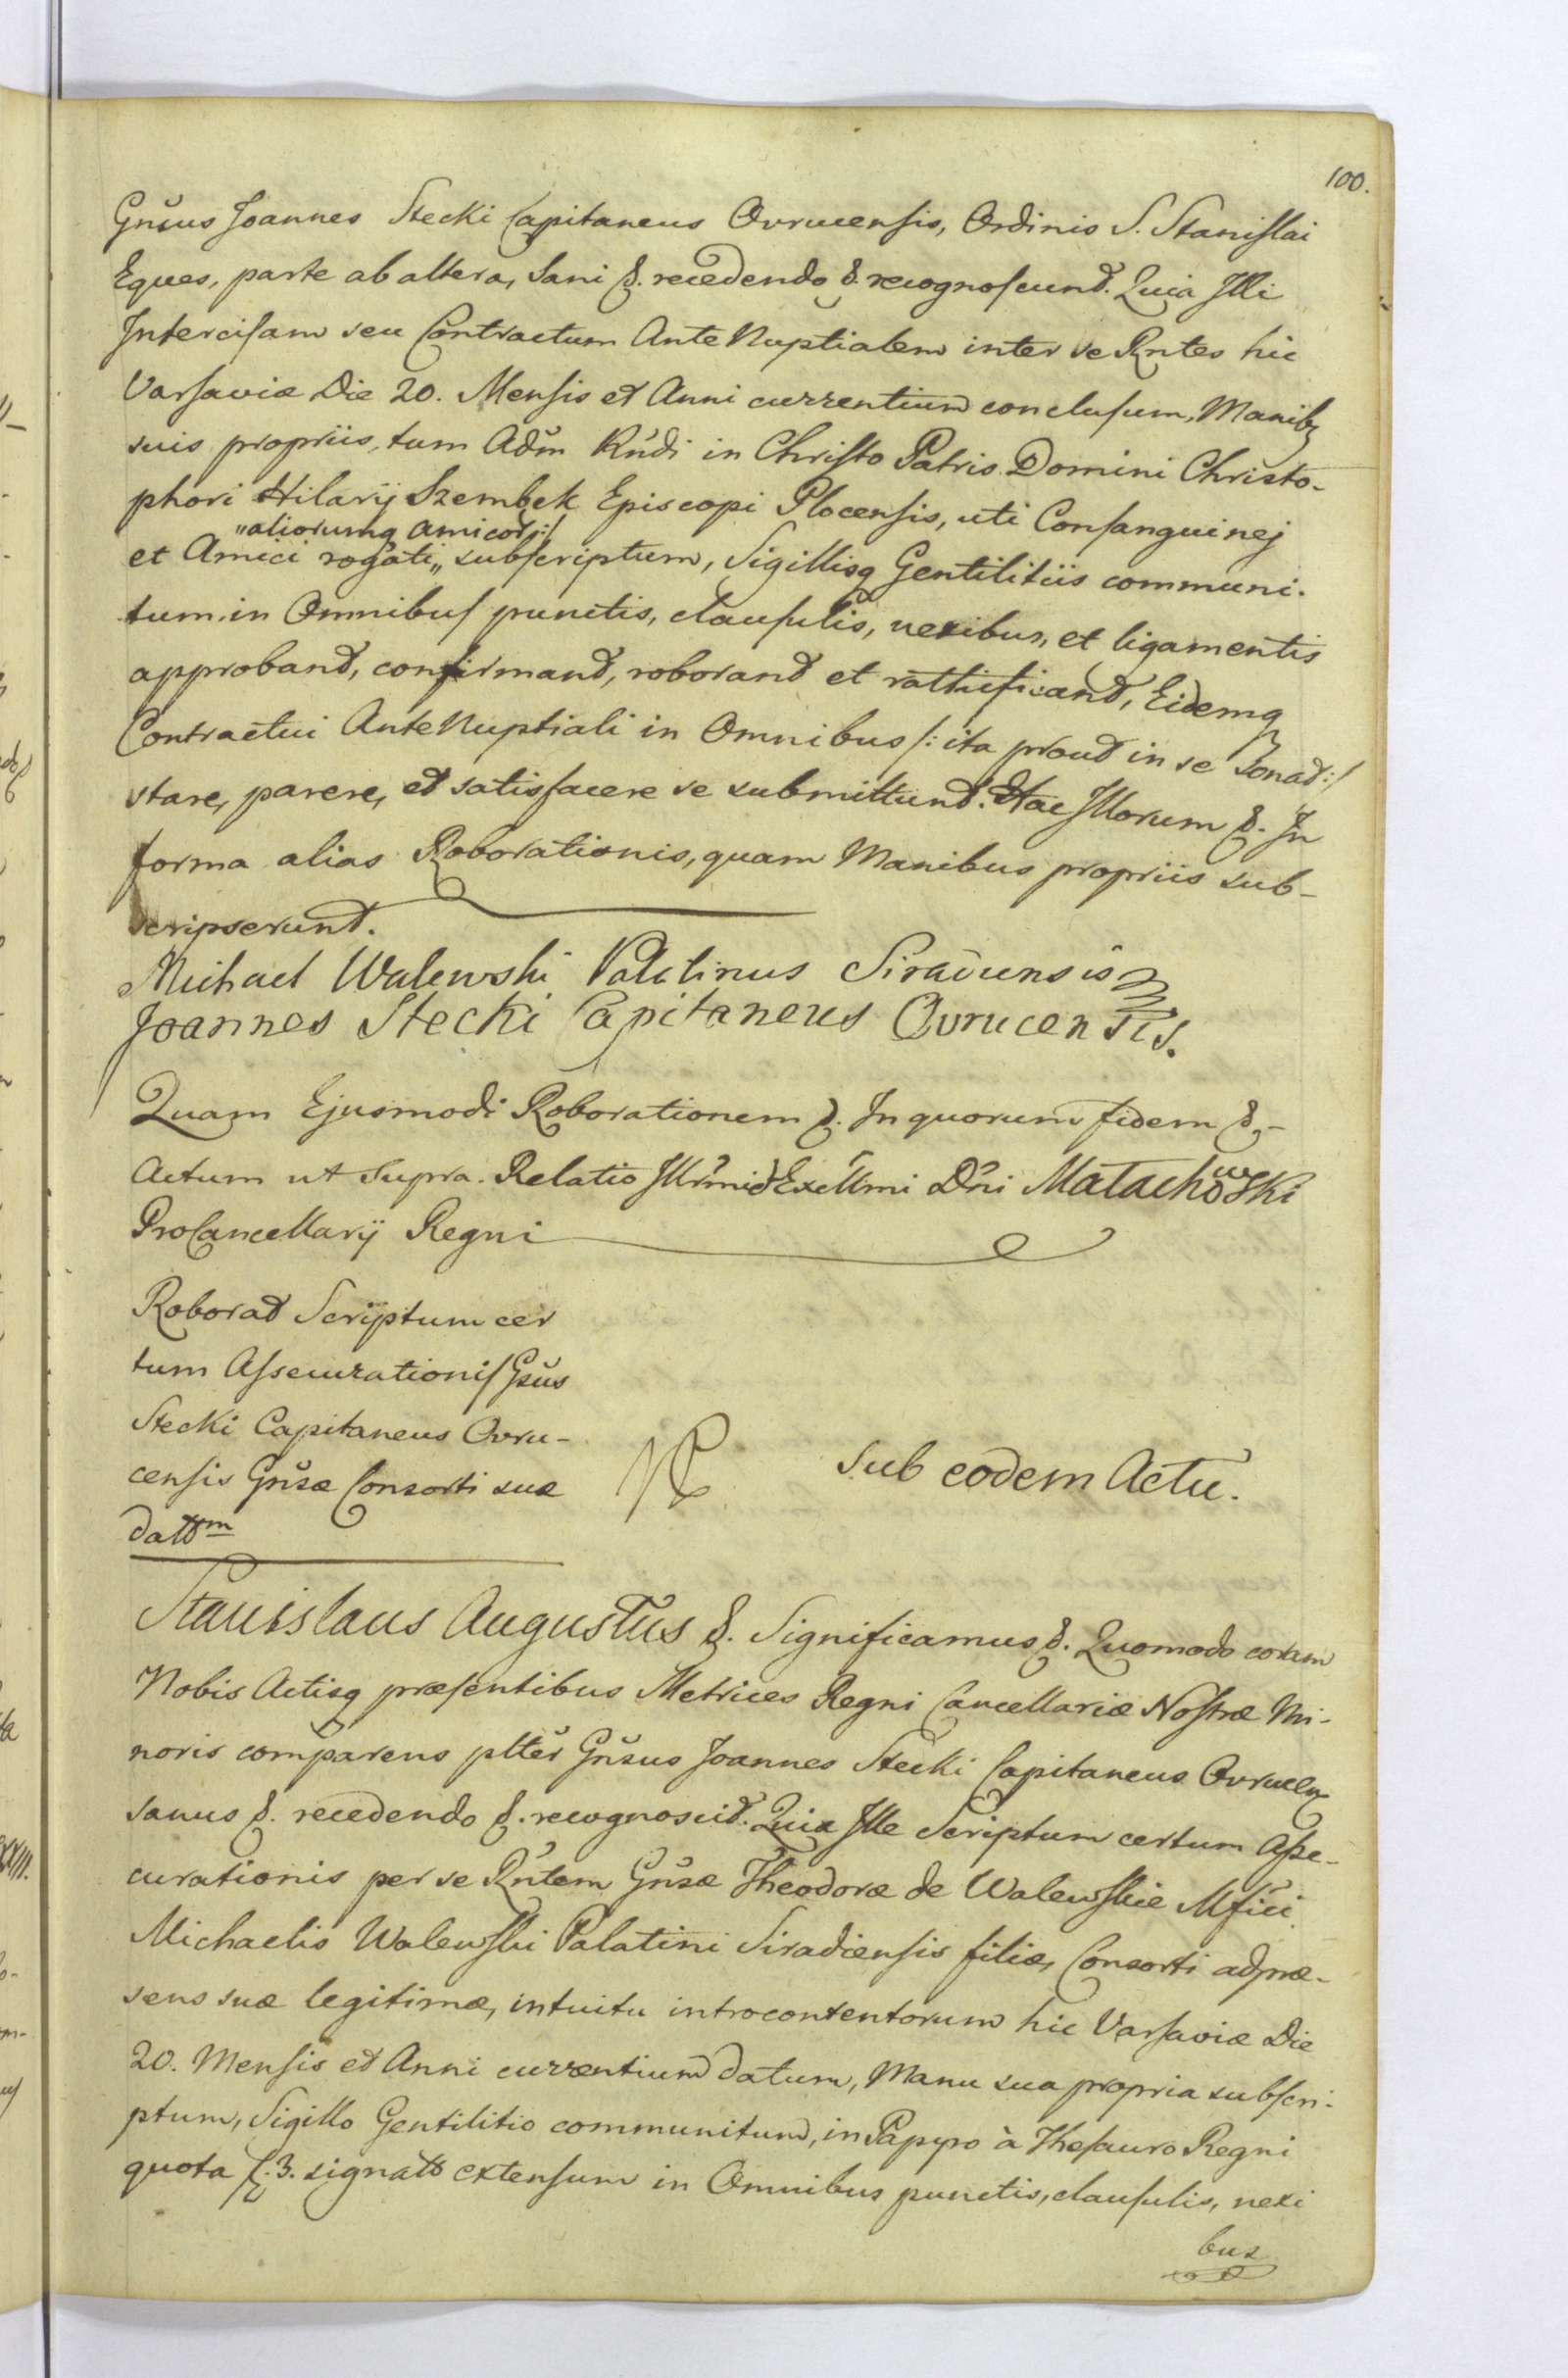 100.
Gnsus Joannes Stecki Capitaneus Ovrucensis, Ordinis S. Stanislai
Eques, parte ab altera, Sani &. recedendo &. recognoscunt. Quia Illi
Intercisam seu Contractum Ante Nuptialem inter se Rntes hic
Varsaviæ Die 20. Mensis et Anni currentium conclusum, Manibq
suis propriis, tum Adm Rndi in Christo Patris Domini Christo-
phori Hilarij Szembek Episcopi Plocensis, uti Consanguinej
"aliorumq Amicor:/
et Amici rogati" subscriptum, Sigillisq Gentilitiis communi-
tum in Omnibus punctis, clausulis, nexibus, et ligamentis
approband, confirmand, roborand et rathificand, Eidemq
Contractui Ante Nuptiali in Omnibus /: ita prout in se sonat :/
stare, parere, et satisfacere se submittunt. Hac Illorum &. In
forma alias Roborationis, quam Manibus propriis sub-
scripserunt.
Michael Walewski Palatinus Siradiensis
Joannes Stecki Capitaneus Ovrucensis.
Quam Ejusmodi Roborationem &. In quorum fidem &-
Actum ut supra. Relatio Illrmi et Excllmi Dni Małachowski
ProCancellarij Regni
Roborat Scriptum cer
tum Assecurationis Gsus
Stecki Capitaneus Ovru-
censis Gnsæ Consorti suæ
dattm
Sub eodem Actu.
Stanislaus Augustus &. Significamus &. Quomodo coram
Nobis Actisq præsentibus Metrices Regni Cancellariæ Nostræ Mi-
noris comparens plter Gnsus Joannes Stecki Capitaneus Ovrucen
sanus &. recedendo &. recognoscit. Quia Ille Scriptum certum Asse-
curationis per se Rntem Gnsæ Theodoræ de Walewskie Mfici
Michaelis Walewski Palatini Siradiensis filiæ, Consorti ad præ-
sens suæ legitimæ, intuitu introcontentorum hic Varsaviæ Die
20. Mensis et Anni currentium datum, Manu sua propria subscri-
ptum, Sigillo Gentilitio communitum, in Papyro à Thesauro Regni
quota f. 3. signatto extensum in Omnibus punctis, clausulis, nexi
bus